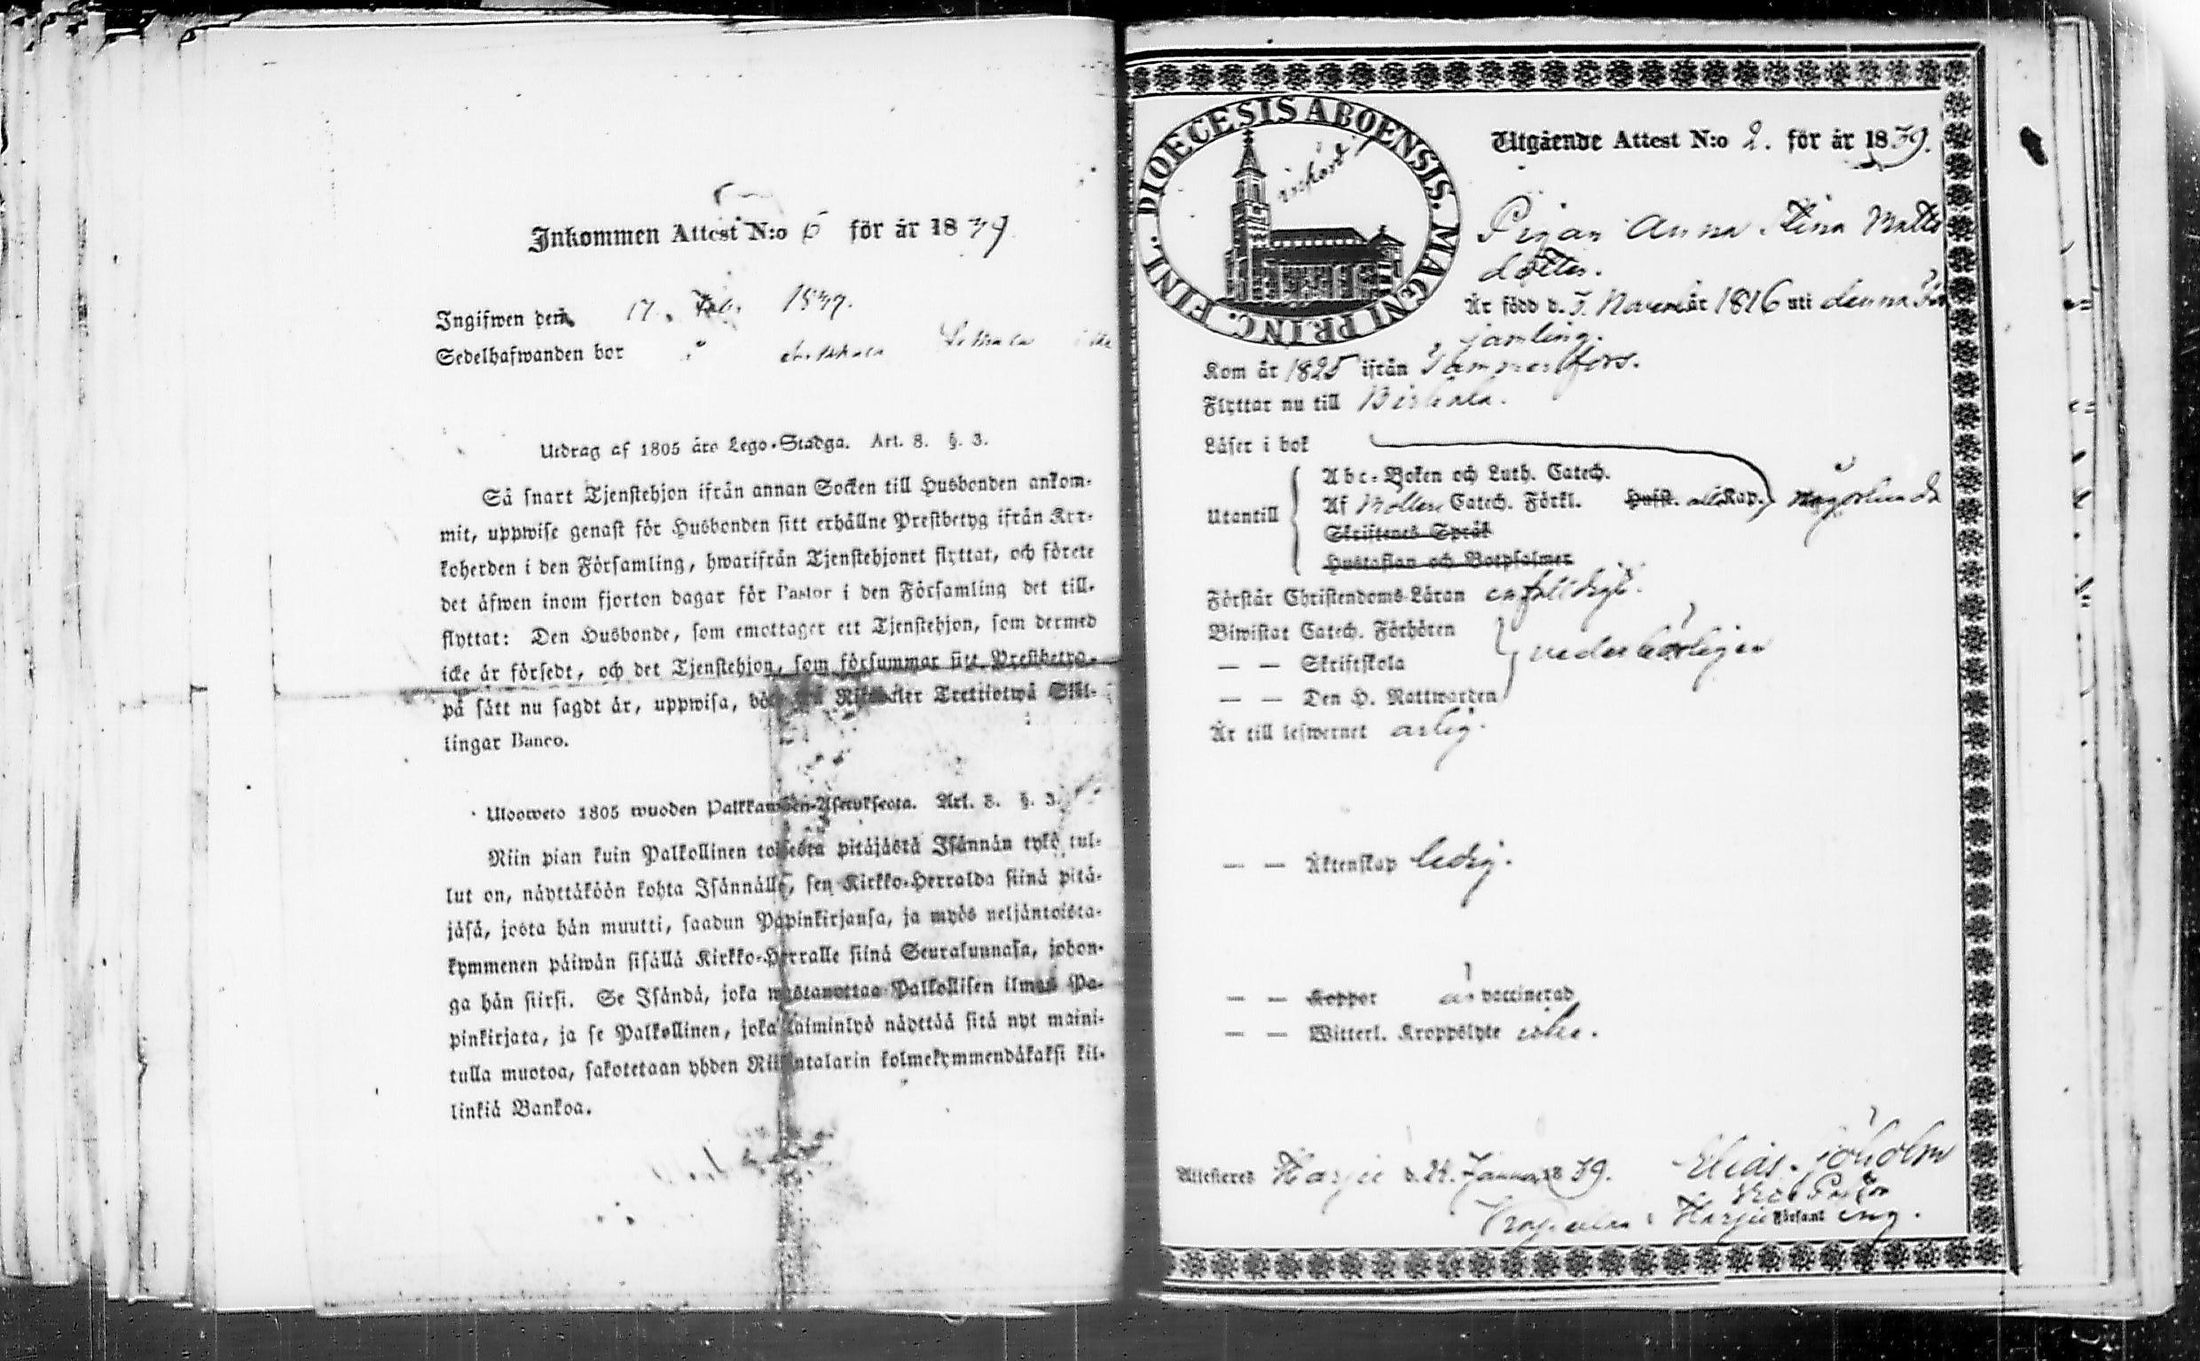 Inkommen Attest N:o 6 för år 1839
Ingifwen den 17. Feb. 1839.
Sedelhafwanden bor
Utdrag af 1805 års Lego-Stadga. Art. 8. §. 3.
Så snart Tjenstehjon ifrån annan Socken till Husbonden ankom-
mit, uppwise genast för Husbonden sitt erhållne Prestbetyg ifrån Kyr-
koherden i den Församling, hwarifrån Tjenstehjonet flyttat, och förete
det äfwen inom fjorton dagar för Pastor i den Församling det till-
flyttat: Den Husbonde, som emottager ett Tjenstehjon, som dermed
icke är försedt, och det Tjenstehjon, som försummar sitt Prestbetyg,
på sätt nu sagdt är, uppwisa, Tretiotwå Skil-
lingar Banco.
Ulosweto 1805 wuoden Palkkawäen-Asetuksesta. Art. 8. §. 3.
Niin pian kuin Palkollinen toisesta pitäjästä Isännän tykö tul-
lut on, näyttäköön kohta Isännälle, sen Kirkko-Herralda siinä pitä-
jäsä, josta hän muutti, saadun Papinkirjansa, ja myös neljäntoista-
kymmenen päiwän sisällä Kirkko-Herralle siinä Seurakunnasa, johon-
ga hän siirsi. Se Isändä, joka wastanottaa Palkollisen ilman Pa-
pinkirjata, ja se Palkollinen, joka laiminlyö näyttää sitä nyt maini-
tulla muotoa, sakotetaan yhden Riikintalarin kolmekymmendäkaksi kil-
linkiä Bankoa.
DIOECESIS ABOENSIS. MAGNI PRINC. FINL.
Utgående Attest N:o 2. för år 1839.
Pigan Anna Stina Matts
dotter.
Är född d. 3. Novemb år 1816 uti denna För
samling.
Kom år 1825 ifrån Tammerfors.
Flyttar nu till Birkala.
Läser i bok
Utantill
Abc-Boken och Luth. Catech.
Af Möllers Catech. Förkl. Husst. alla Kap. någorlunda
Skriftenes Språk
Hustaflan och Botpsalmer
Förstår Christendoms-Läran enfalldigt.
Biwistat Catech. Förhören
— — Skriftskola vederbörligen
— — Den H. Nattwarden
Är till lefwernet ärlig.
— — Äktenskap ledig.
— — Koppor är vaccinerad
— — Witterl. Kroppslyte icke.
Attesteras Harju d. 24. Januari 1839. Elias Sjöholm
Vice Pastor
i Harju Församling.